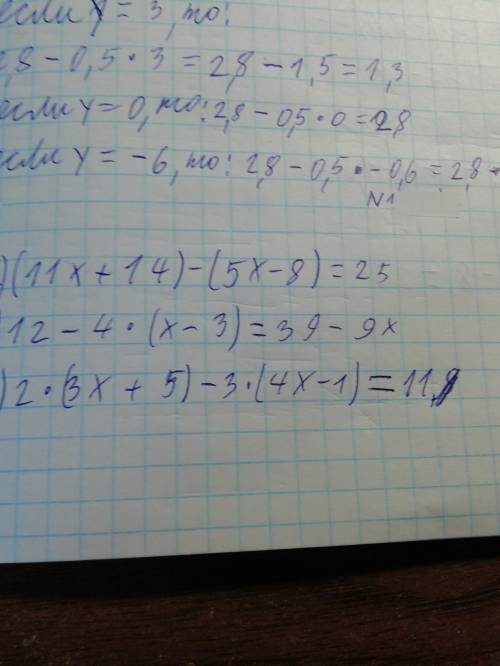 если y = 3, то:
2,8 - 0,5 · 3 = 2,8 - 1,5 = 1,3
если y = 0, то: 2,8 - 0,5 · 0 = 2,8
если y = -6, то: 2,8 - 0,5 · - 0,6 = 2,8 +
N1
) (11x + 14) - (5x - 8) = 25
12 - 4 · (x - 3) = 39 - 9x
) 2 · (3x + 5) - 3 · (4x - 1) = 11,